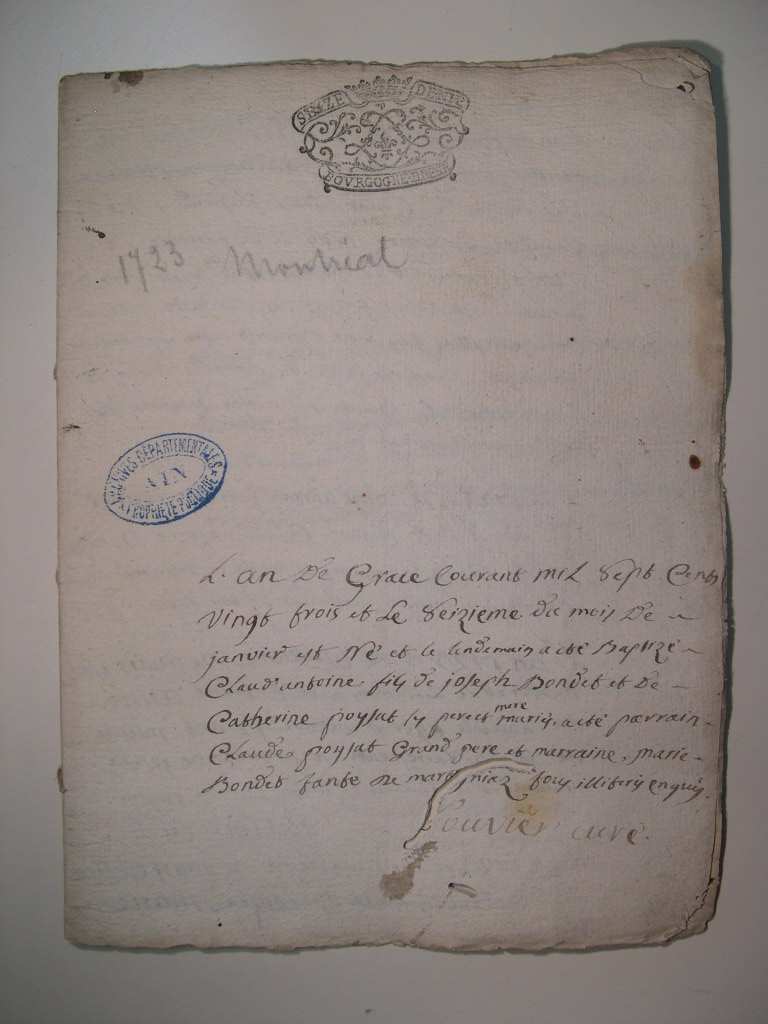 SEIZE DENIE
BOVRGOGNE
1723 Montréal
ARCHIVES DÉPARTEMENTALES
AIN
PROPRIÉTÉ PUBLIQUE
L'an De Grace Courant mil Sept Cents
Vingt trois et Le Seizieme du mois De
janvier est Né et le lendemain a eté Baptizé
Claud'antoine fils de joseph Bondet et De
mere
Catherine poysat sy pere et mariés, a eté parrain
Claude poysat Grand pere et marraine, marie
Bondet tante de tous illiterés enquis
Bouvier curé.